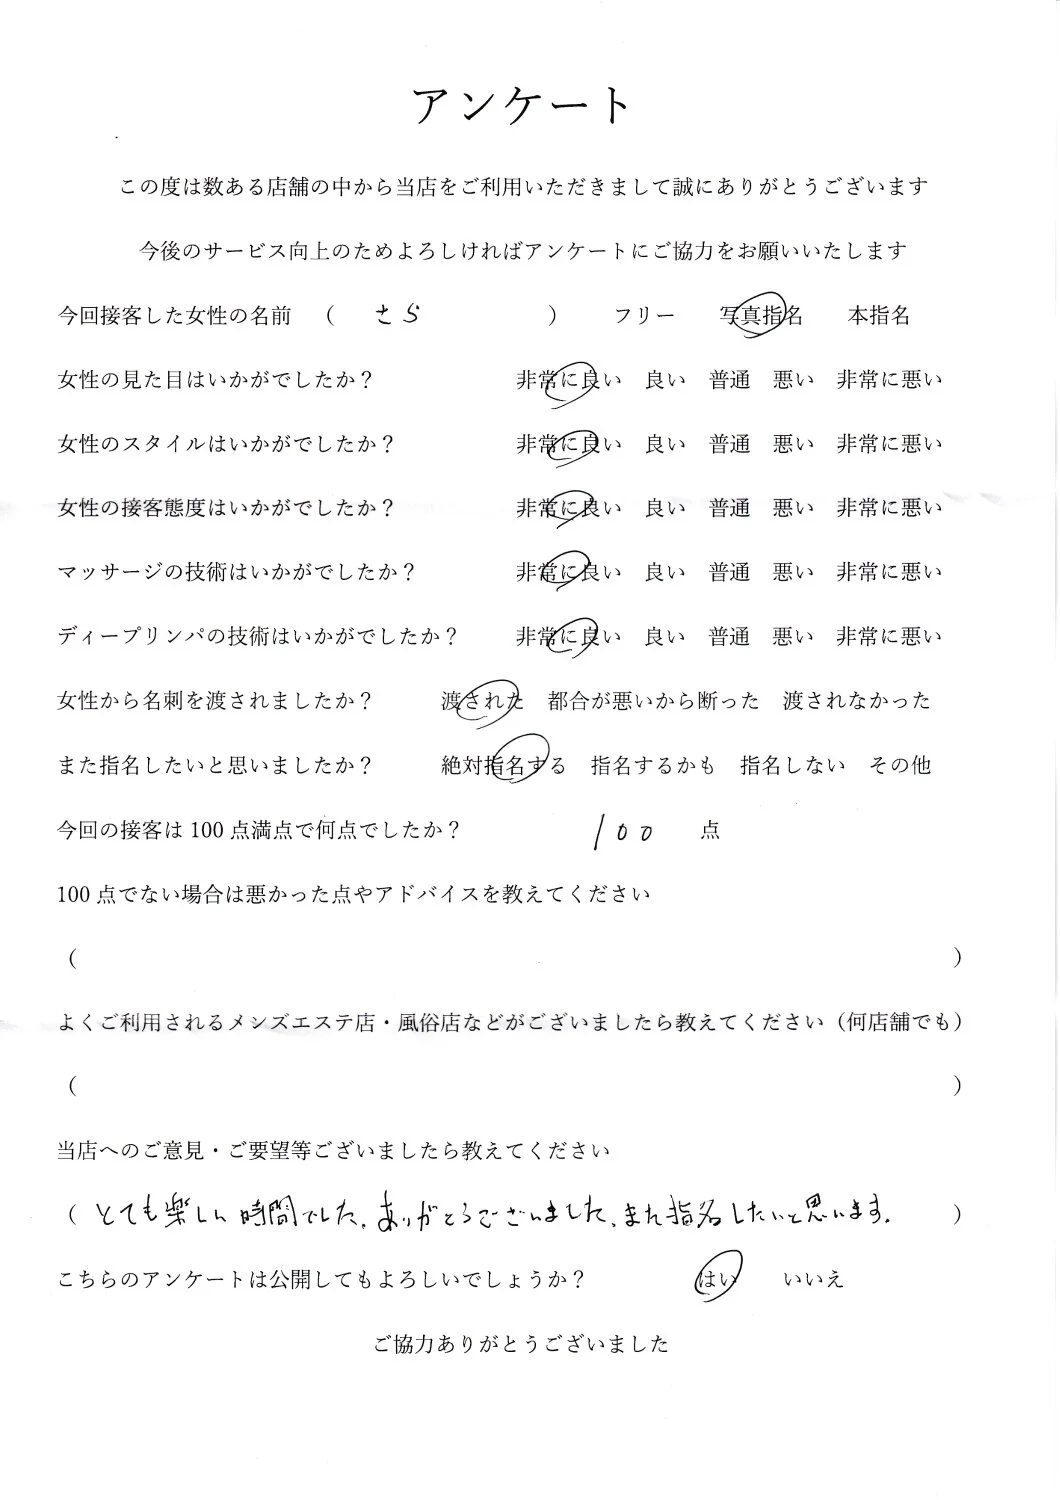 アンケート
この度は数ある店舗の中から当店をご利用いただきまして誠にありがとうございます
今後のサービス向上のためよろしければアンケートにご協力をお願いいたします
今回接客した女性の名前 （ さら ） フリー 写真指名 本指名
女性の見た目はいかがでしたか？ 非常に良い 良い 普通 悪い 非常に悪い
女性のスタイルはいかがでしたか？ 非常に良い 良い 普通 悪い 非常に悪い
女性の接客態度はいかがでしたか？ 非常に良い 良い 普通 悪い 非常に悪い
マッサージの技術はいかがでしたか？ 非常に良い 良い 普通 悪い 非常に悪い
ディープリンパの技術はいかがでしたか？ 非常に良い 良い 普通 悪い 非常に悪い
女性から名刺を渡されましたか？ 渡された 都合が悪いから断った 渡されなかった
また指名したいと思いましたか？ 絶対指名する 指名するかも 指名しない その他
今回の接客は 100 点満点で何点でしたか？ 100 点
100 点でない場合は悪かった点やアドバイスを教えてください
（ ）
よくご利用されるメンズエステ店・風俗店などがございましたら教えてください（何店舗でも）
（ ）
当店へのご意見・ご要望等ございましたら教えてください
（ とても楽しい時間でした。ありがとうございました。また指名したいと思います。 ）
こちらのアンケートは公開してもよろしいでしょうか？ はい いいえ
ご協力ありがとうございました